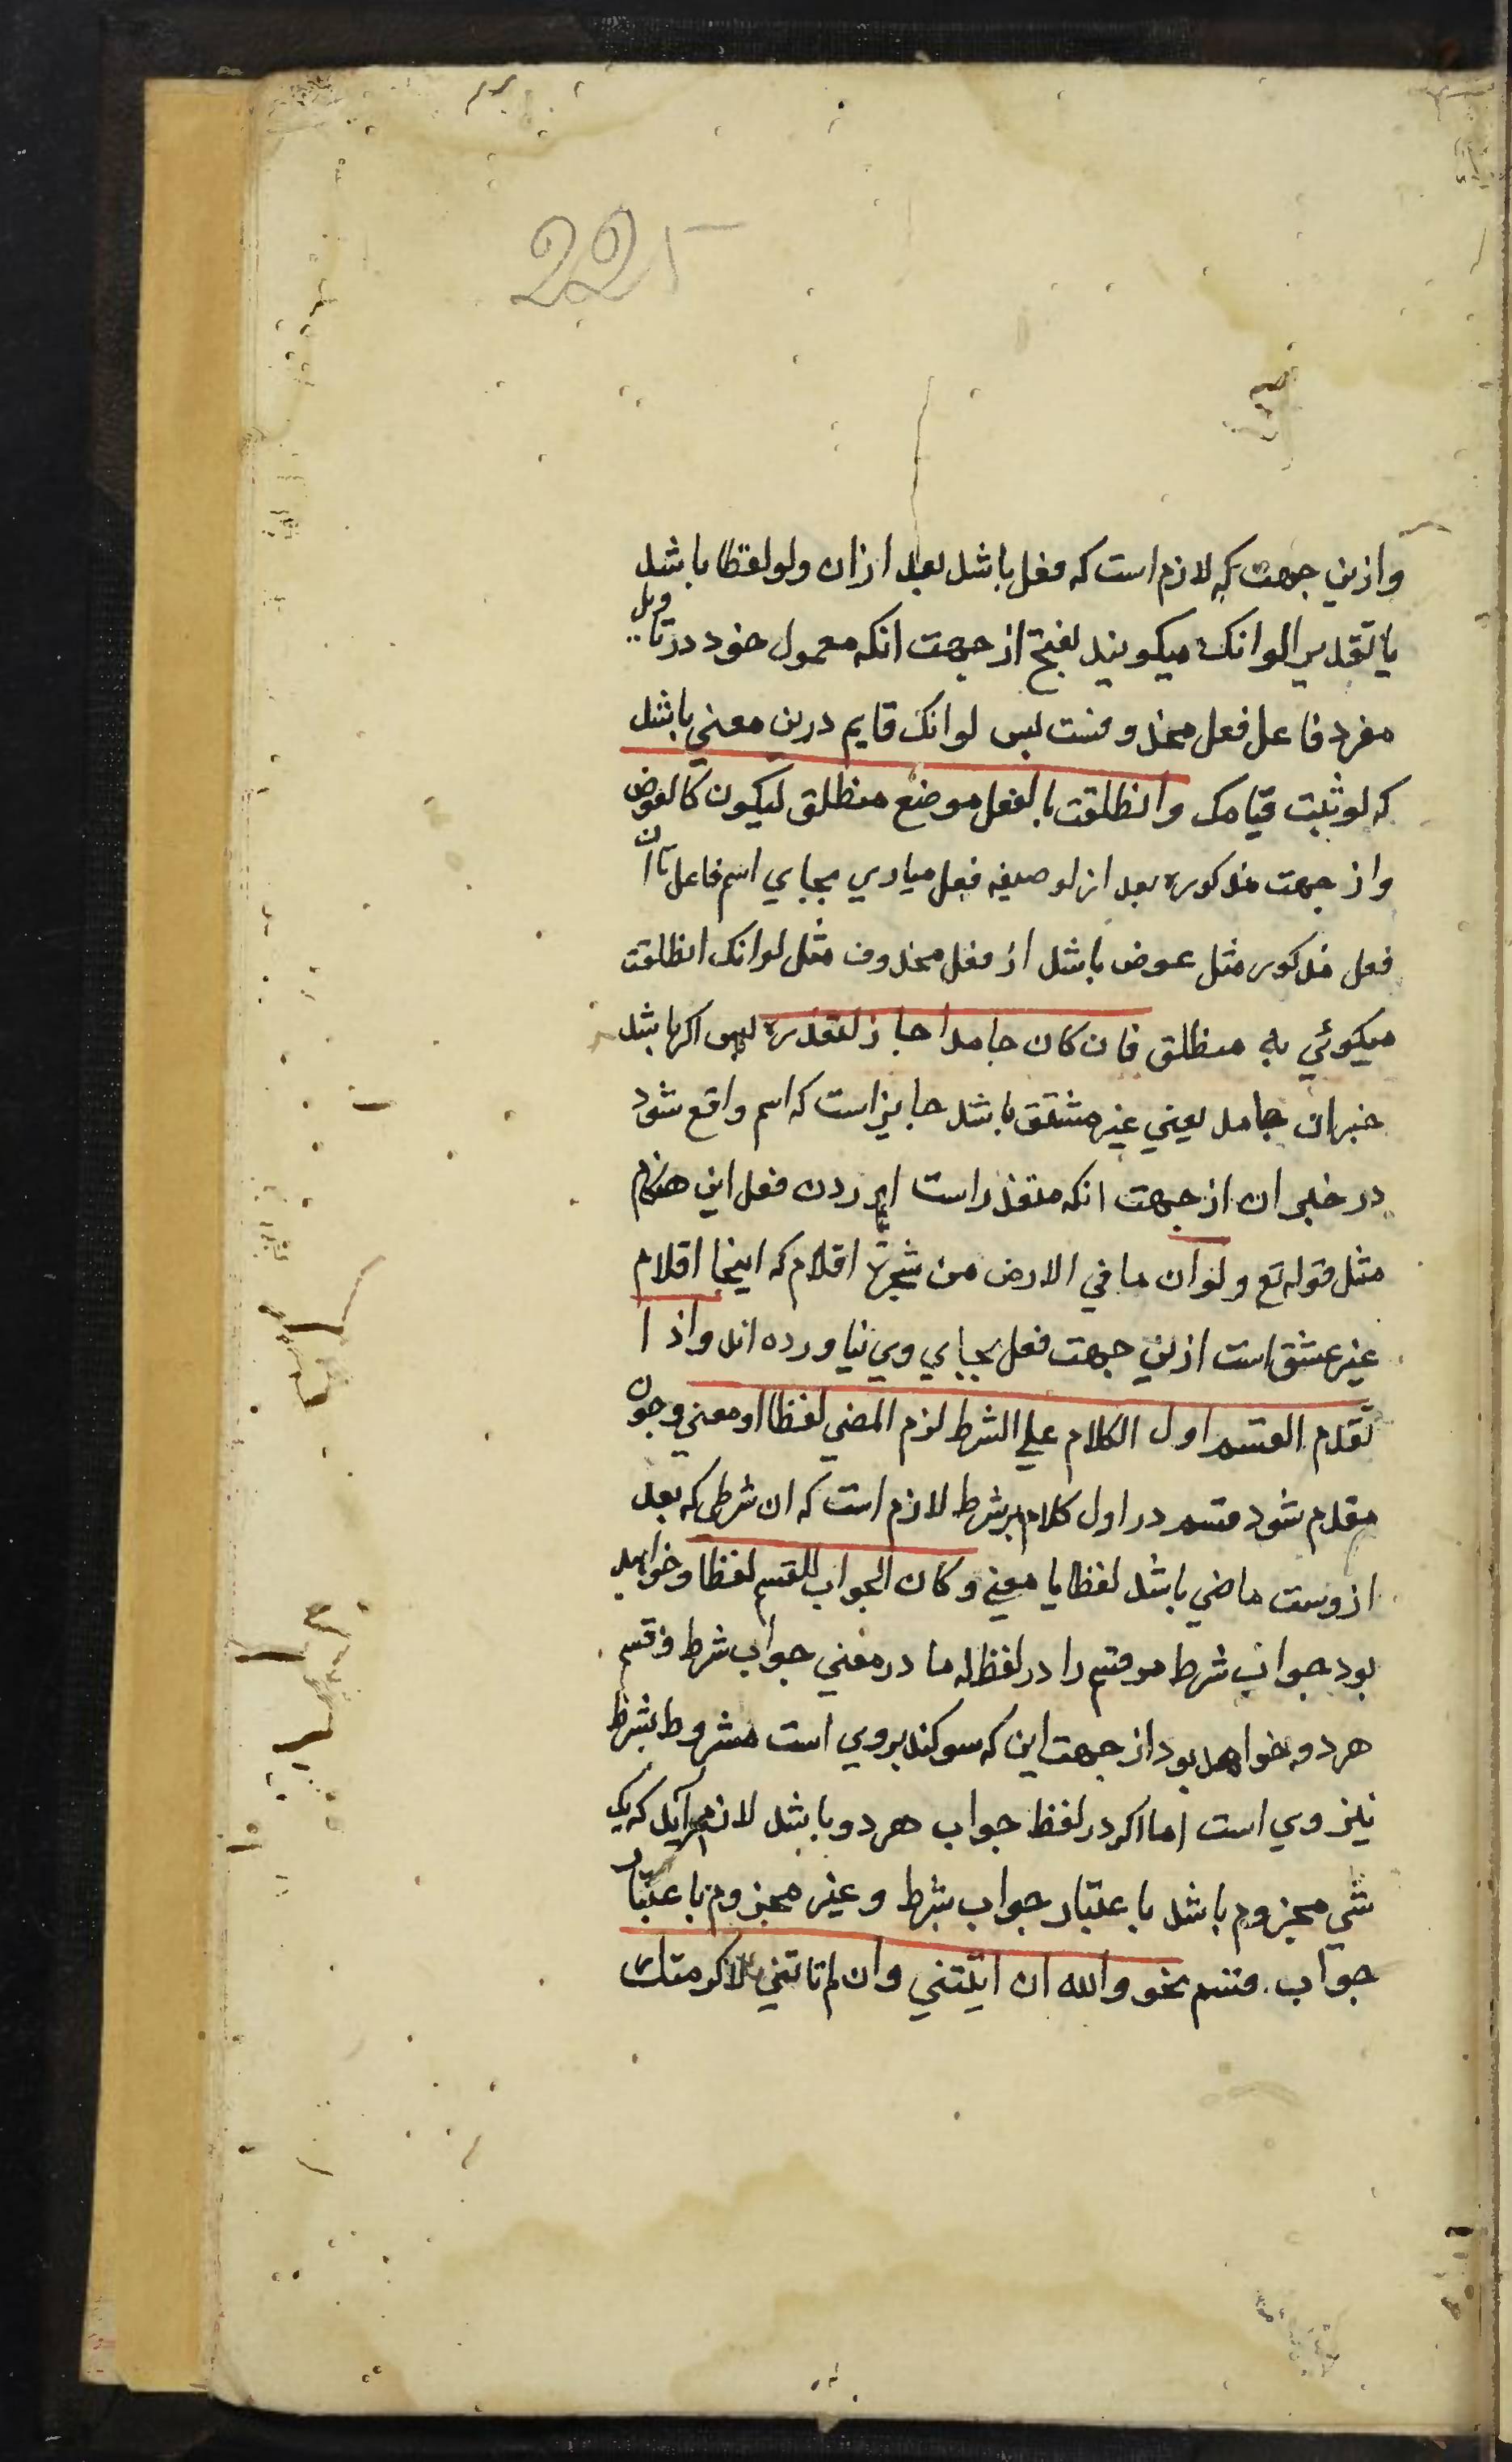 225
وازین جهت که لازم است که فعل باشد بعد ازان ولو لفظا باشد
یا تقدیرا لو انک میکویند بفتح از جهت انکه معمول خود در تاویل
مفرد فاعل فعل محذوفست بس لو انک قایم درین معنی باشد
که لو ثبت قیامک وانطلقت بالفعل موضع منطلق لیکون کالعوض
واز جهت مذکوره بعد از لو صیغه فعل میاری بجای اسم فاعل تا ان
فعل مذکور مثل عوض باشد از فعل محذوف مثل لو انک انطلقت
میکوئی به منطلق فان کان جامدا جاز لتعذره بس اکر باشد
خبر ان جامد یعنی غیر مشتق باشد جایز است که اسم واقع شود
در خبر ان از جهت انکه متعذر است اوردن فعل این هنکام
مثل قوله تع ولو ان ما فی الارض من شجرة اقلام که اینجا اقلام
غیر مشتق است ازین جهت فعل بجای وی نیاورده اند واذا
تقدم القسم اول الکلام علی الشرط لزم المضی لفظا او معنی وچون
مقدم شود قسم در اول کلام بر شرط لازم است که ان شرطی که بعد
ازوست ماضی باشد لفظا یا معنی وکان الجواب للقسم لفظا وخواهد
بود جواب شرط مر قسم را در لفظ اما در معنی جواب شرط وقسم
هردو خواهد بود از جهت این که سوکند بروی است مشروط بشرط
نیز وی است اما اکر در لفظ جواب هردو باشد لازم آید که یک
شی مجزوم باشد باعتبار جواب شرط وغیر مجزوم باعتبار
جواب قسم نحو والله ان اتیتنی وان لم تاتنی لاکرمتک